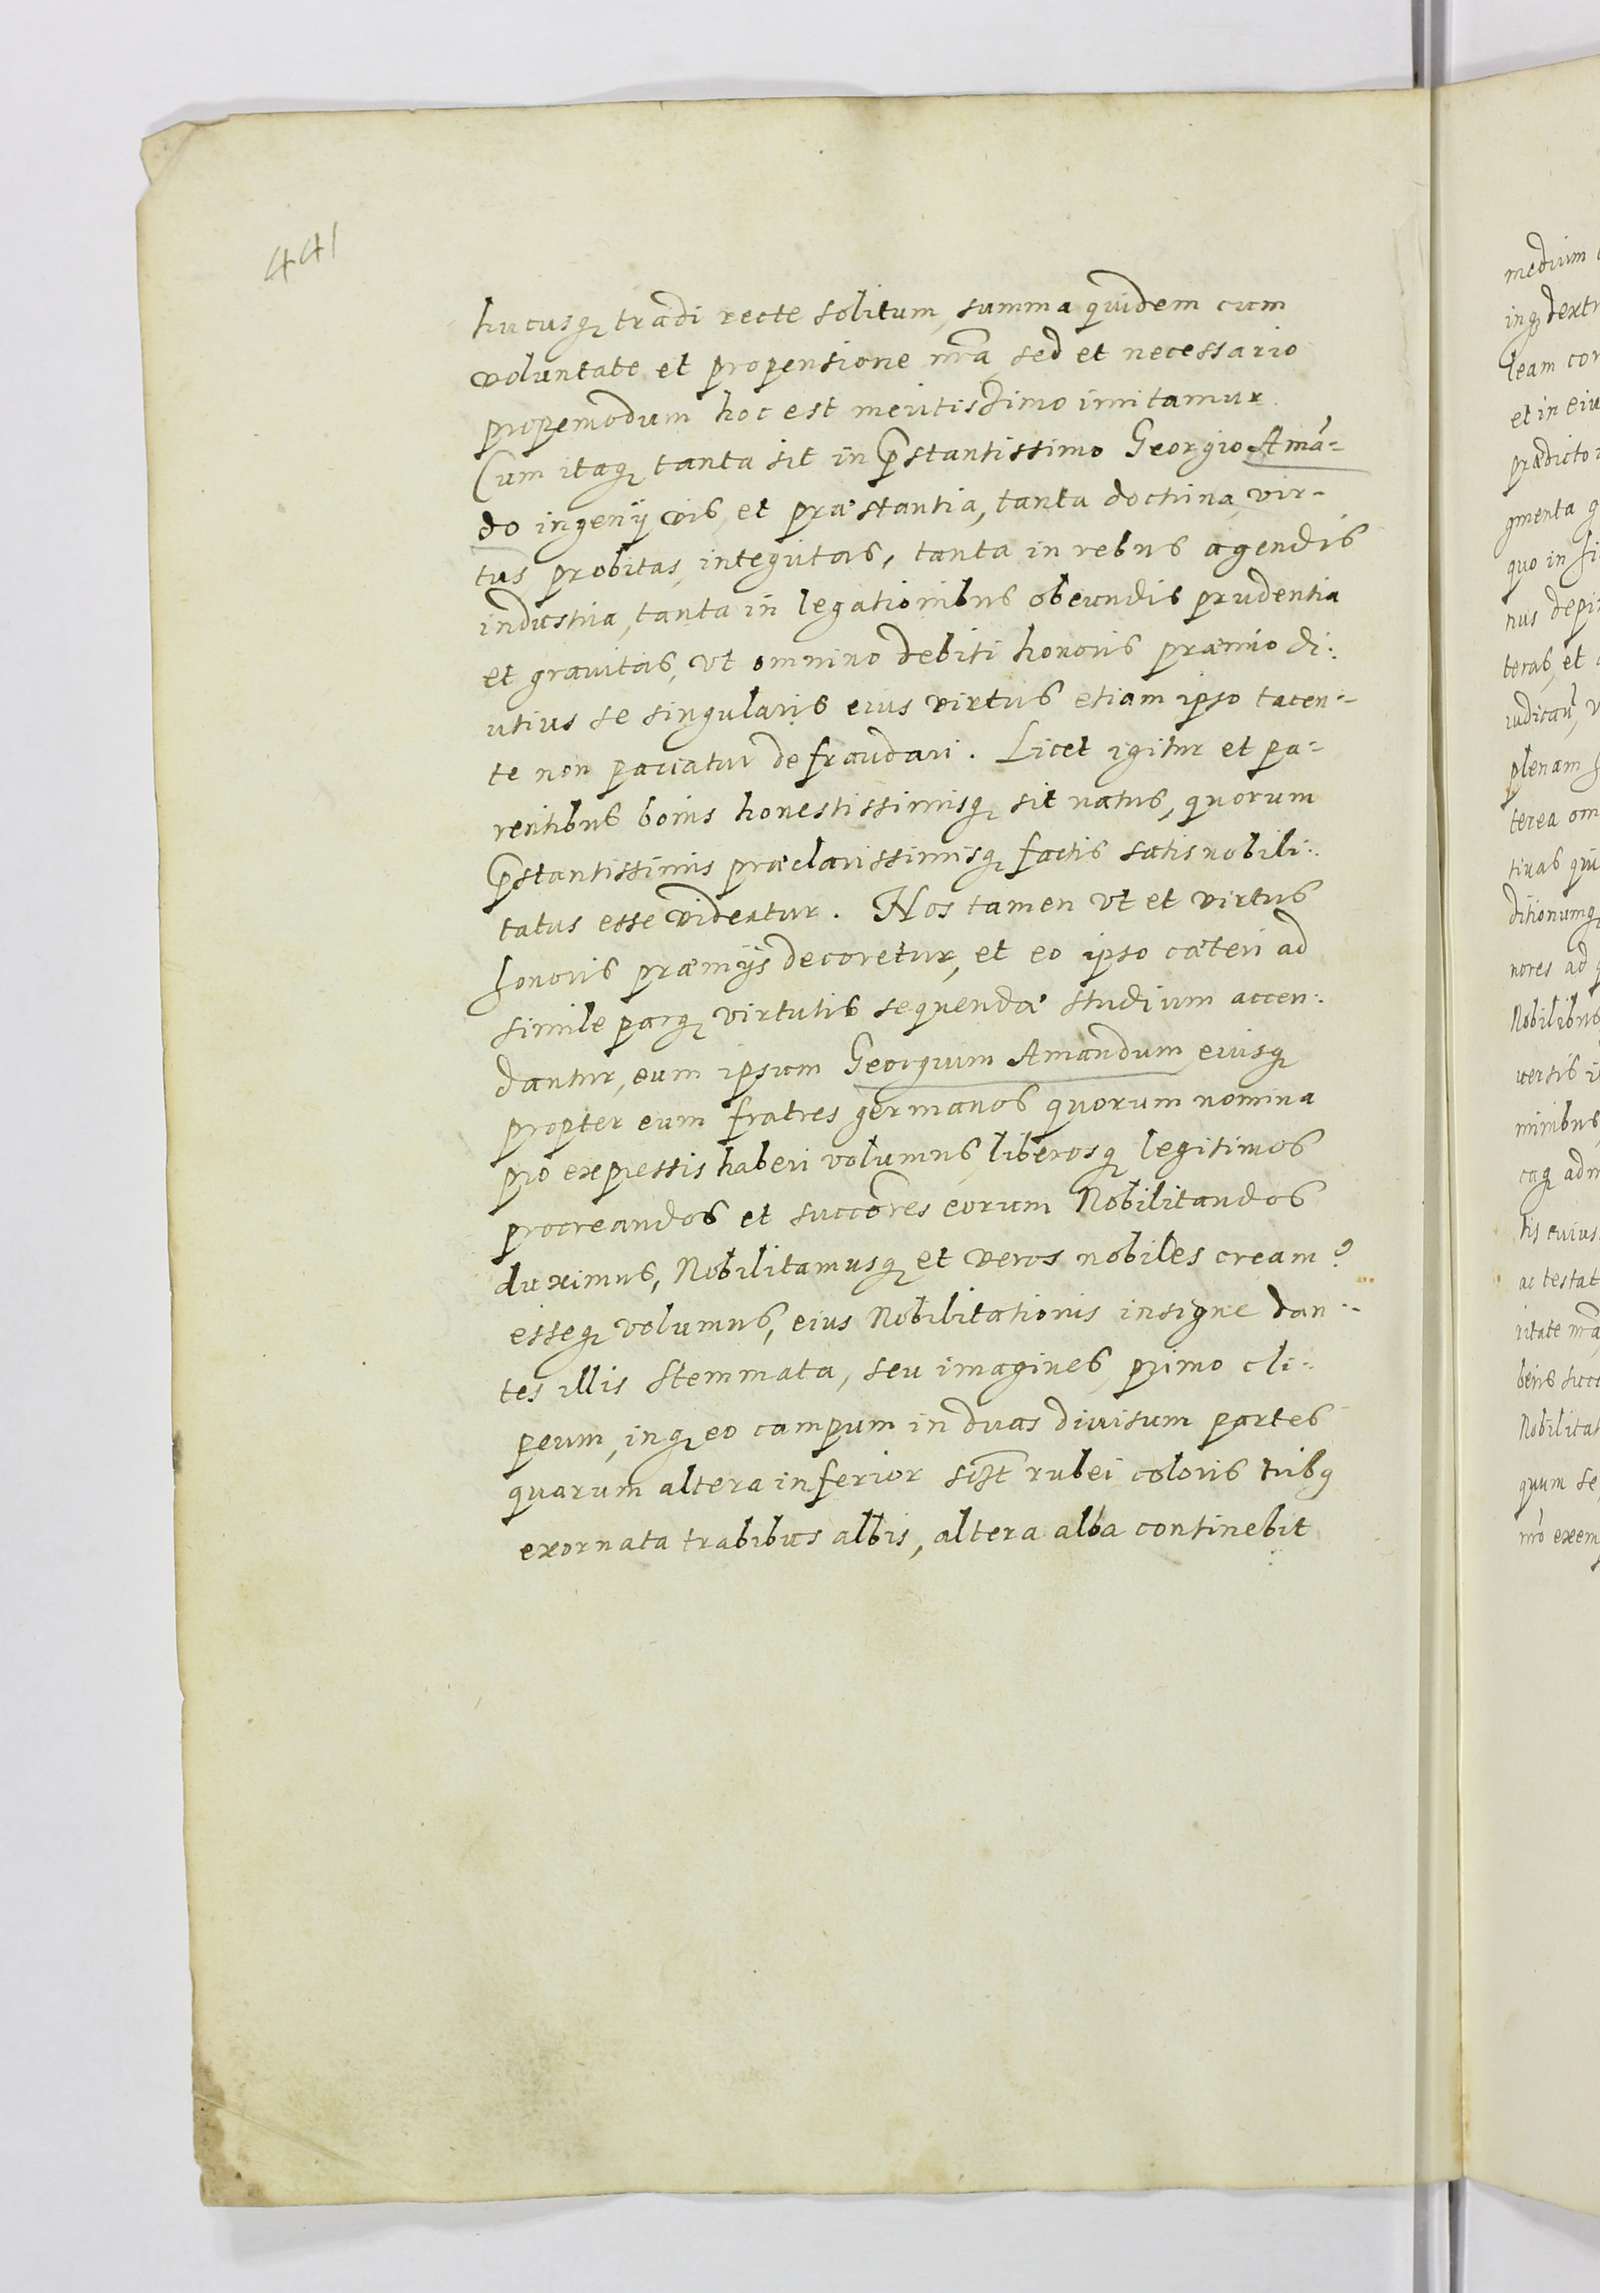 441
hucusq; tradi recte solitum, summa quidem cum
voluntate et propensione nra, sed et necessario
propemodum hoc est meritissimo imitamur.
Cum itaq; tanta sit in pstantissimo Georgio Amā-
do ingenij vis et præstantia, tanta doctrina, vir-
tus probitas, integritas, tanta in rebus agendis
industria, tanta in legationibus obeundis prudentia
et gravitas, ut omnino debiti honoris præmio di:
utius se singularis eius virtus etiam ipso tacen-
te non paciatur defraudari. Licet igitur et pa-
rentibus bonis honestissimisq; sit natus, quorum
pstantissimis præclarissimisq; factis satis nobili:
tatus esse videatur. Nos tamen ut et virtus
honoris præmijs decoretur, et eo ipso cæteri ad
simile parq; virtutis sequendæ studium accen:
dantur, eum ipsum Georgium Amandum, eiusq;
propter eum fratres germanos quorum nomina
pro expressis haberi volumus, liberosq; legitimos
procreandos et succores eorum Nobilitandos
duximus, Nobilitamusq; et veros nobiles creamꝰ
esseq; volumus, eius Nobilitationis insigne dan:
tes illis Stemmata, seu imagines, primo cli-
peum, inq; eo campum in duas divisum partes
quarum altera inferior sist rubei coloris tribꝰ
exornata trabibus albis, altera alba continebit
medium
inq; dextr
leam cor
et in eiu
prædicto
gmenta q
quo in
nus depi
teras, et
plenam
terea om
tivas qui
ditionumq;
nores ad
Nobilibus
versis
minibus
caq; adm
tis cuius
ac testat
ritate nra
beris succ
Nobilitat
quum se
mo exem